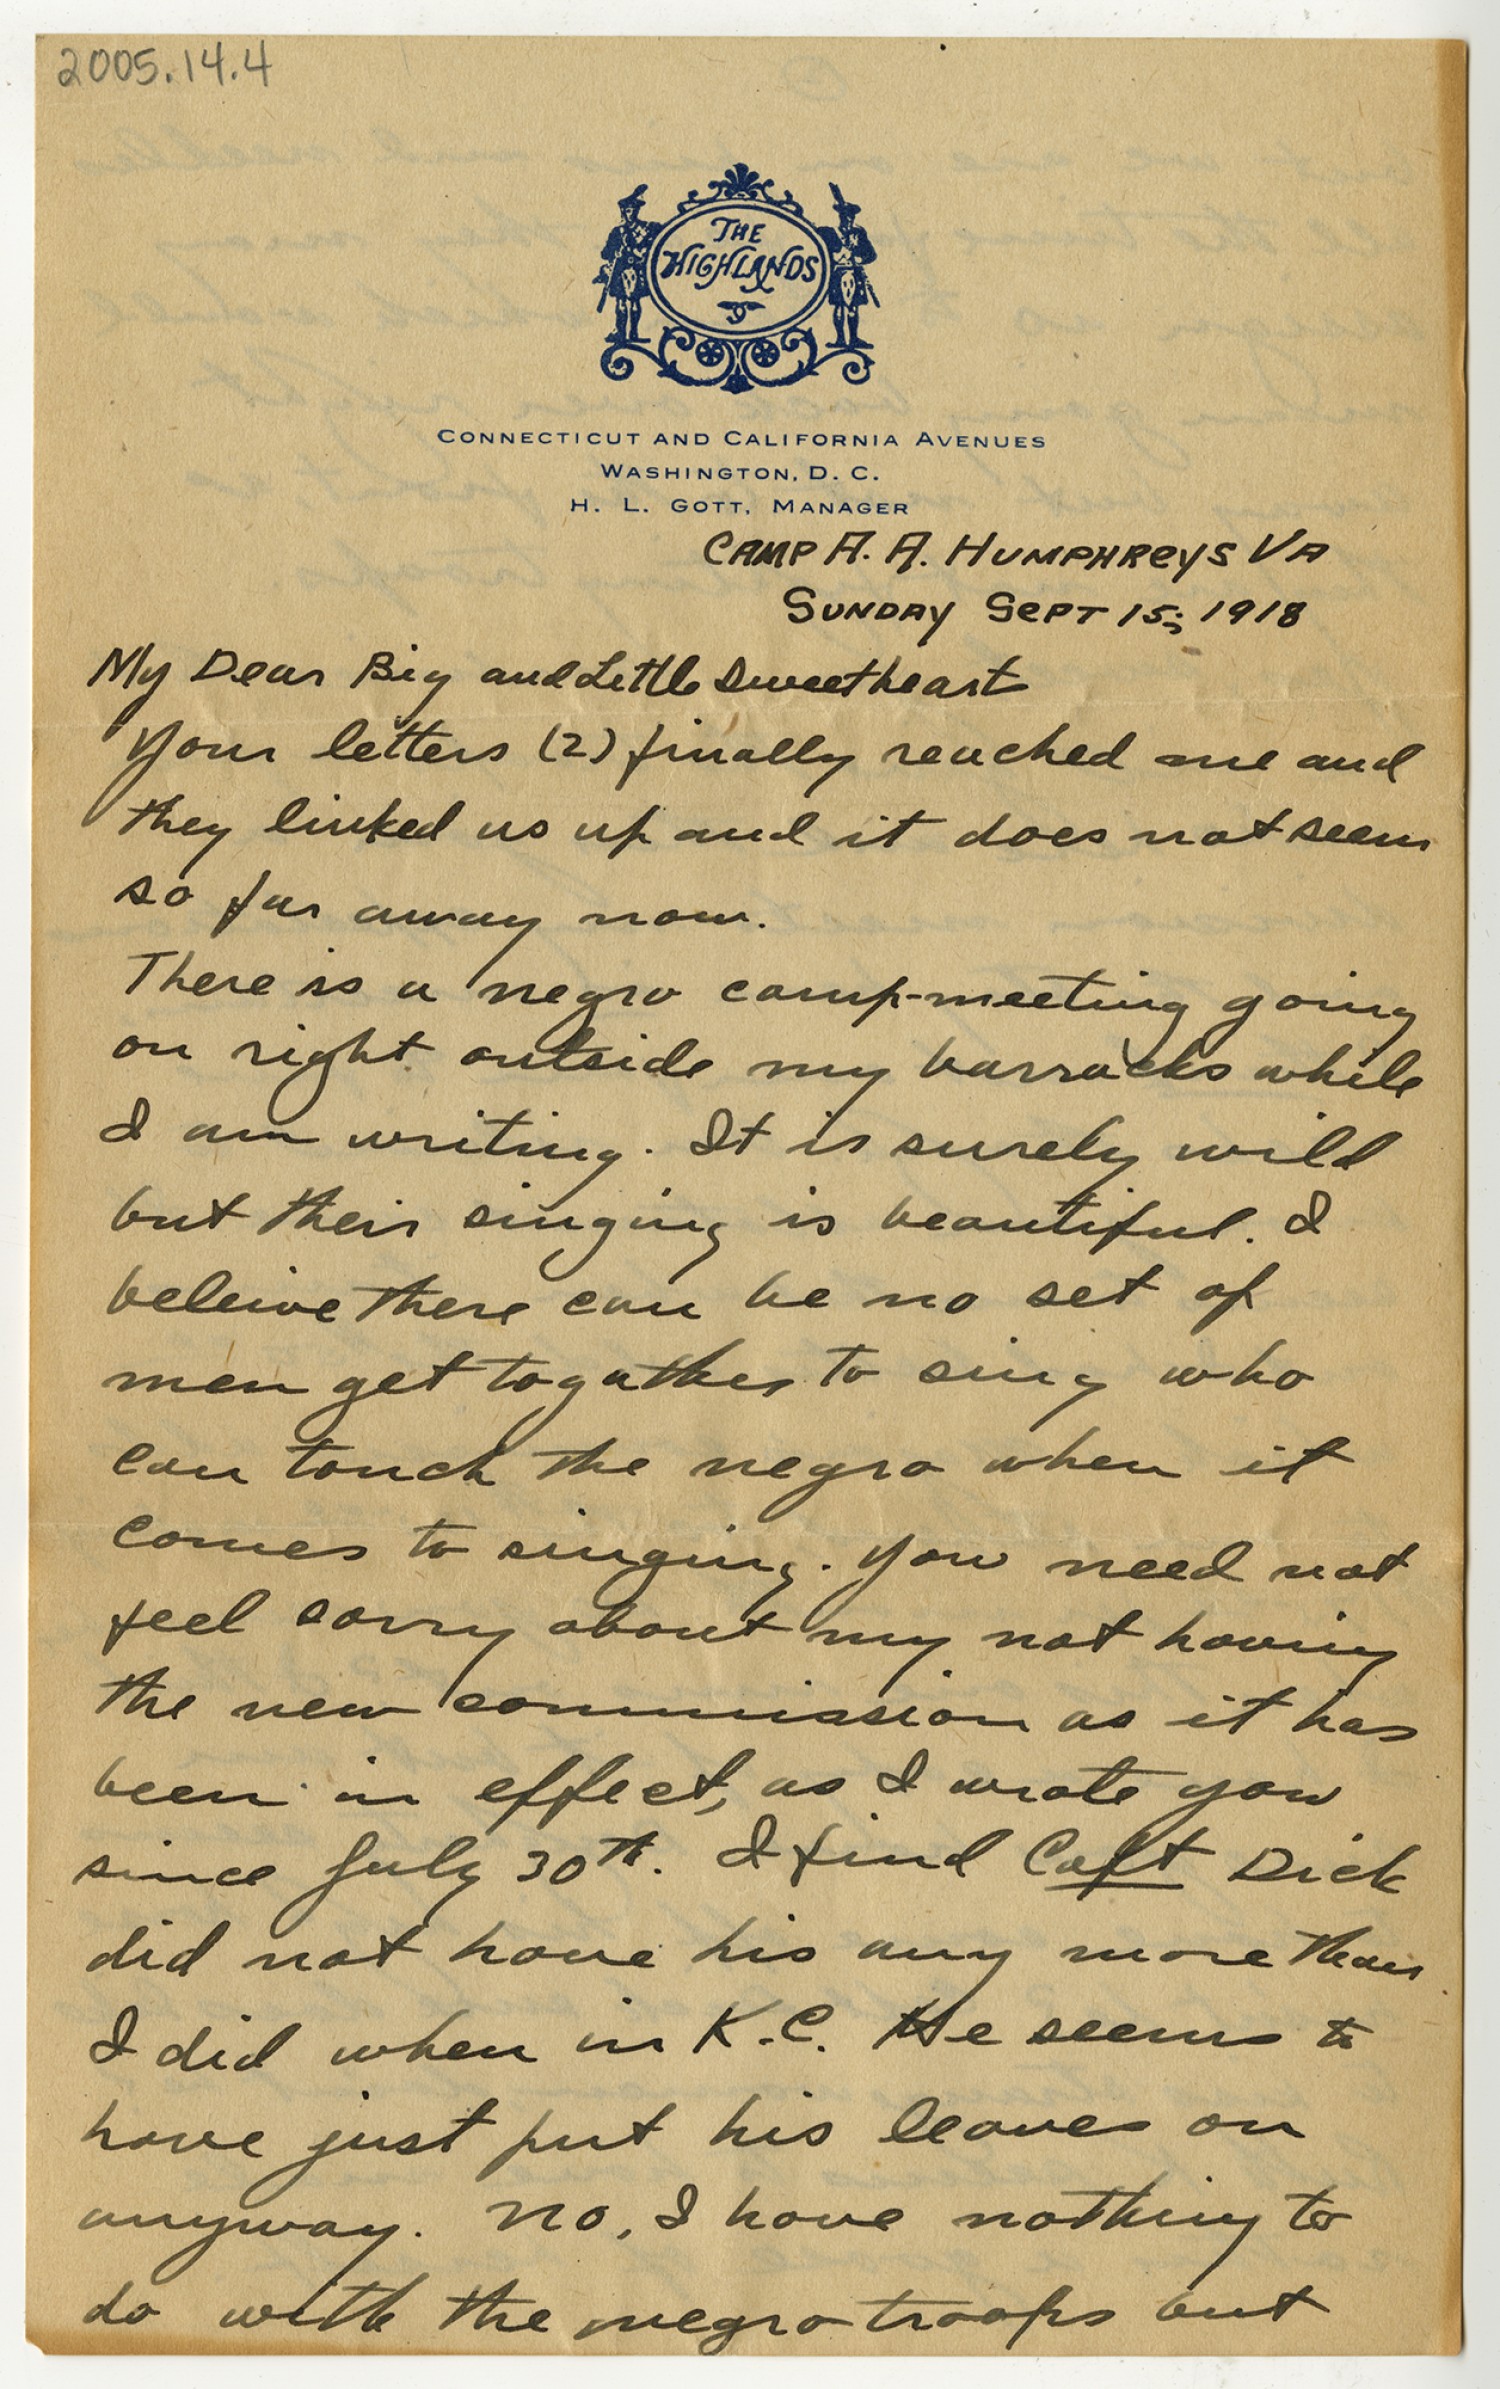 2005.14.4
THE
HIGHLANDS
CONNECTICUT AND CALIFORNIA AVENUES
WASHINGTON, D. C.
H. L. GOTT, MANAGER
CAMP A. A. HUMPHREYS VA
SUNDAY SEPT 15; 1918
My Dear Big and Little Sweetheart
Your letters (2) finally reached me and
they linked us up and it does not seem
so far away now.
There is a negro camp-meeting going
on right outside my barracks while
I am writing. It is surely wild
but their singing is beautiful. I
beleive there can be no set of
men get togather to sing who
can touch the negro when it
comes to singing. You need not
feel sorry about my not having
the new commission as it has
been in effect, as I wrote you
since July 30th. I find Capt Dick
did not have his any more than
I did when in K.C. He seems to
have just put his leaves on
anyway. No, I have nothing to
do with the negro troops but